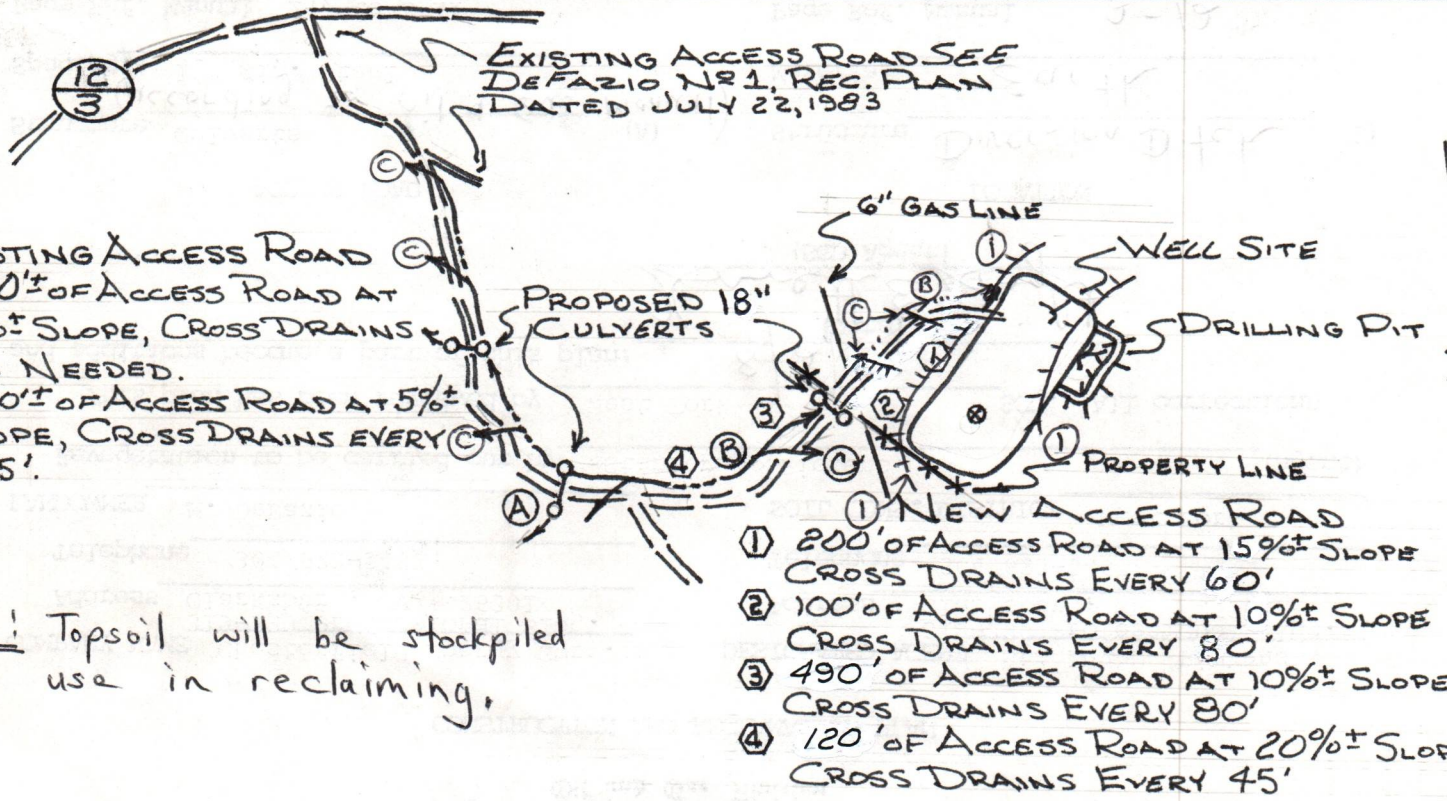 12
3
EXISTING ACCESS ROAD SEE
DEFAZIO Nº 1, REC. PLAN
DATED JULY 22, 1983
C
6" GAS LINE
1
WELL SITE
STING ACCESS ROAD
C
0'± OF ACCESS ROAD AT
%± SLOPE, CROSS DRAINS
NEEDED.
0'± OF ACCESS ROAD AT 5%±
OPE, CROSS DRAINS EVERY
5'.
C
PROPOSED 18"
CULVERTS
B
C
1
DRILLING PIT
3
2
4
B
C
1
A
PROPERTY LINE
1
NEW ACCESS ROAD
1 200' OF ACCESS ROAD AT 15%± SLOPE
CROSS DRAINS EVERY 60'
2 100' OF ACCESS ROAD AT 10%± SLOPE
CROSS DRAINS EVERY 80'
3 490' OF ACCESS ROAD AT 10%± SLOPE
CROSS DRAINS EVERY 80'
4 120' OF ACCESS ROAD AT 20%± SLOP
CROSS DRAINS EVERY 45'
Topsoil will be stockpiled
use in reclaiming.